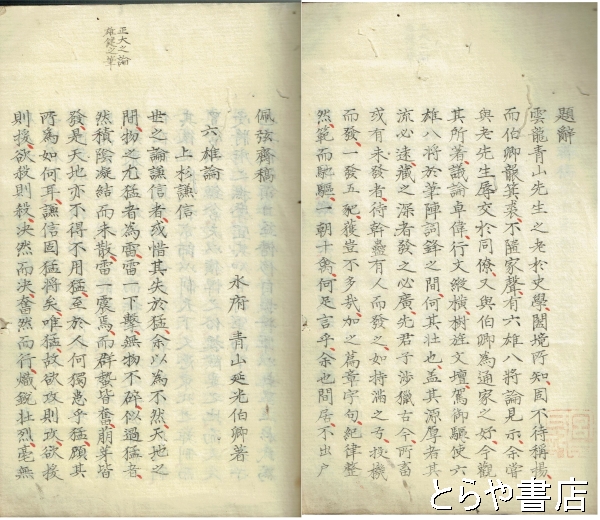 題辭
雲龍青山先生之老於史學闔境所知固不待稱揚
而伯卿龔箕裘不隕家聲有六雄八將論見示余嘗
與老先生辱交於同僚又與伯卿為通家之好今觀
其所著議論卓偉行文縱橫樹旌文壇駕御驅使六
雄八將於筆陣詞鋒之間何其壯也蓋其源厚者其
流必遠藏之深者發之必廣先君子涉獵古今所畜
或有未發者待幹蠱有人而發之如持滿之弓投機
而發一發五豝獲豈不多哉加之篇章字句紀律整
然範而馳驅一朝十禽何足言乎余也間居不出戶
正大之論
雄健之筆
佩弦齋稿
水府 青山延光伯卿著
六雄論
上杉謙信
世之論謙信者或惜其失於猛余以為不然天地之
間物之尤猛者為雷雷一下擊無物不碎似過猛者
然積陰凝結而未散雷一震焉而群蟄皆奮崩芽皆
發是天地亦不得不用猛至於人何獨患乎猛顧其
所為如何耳謙信固猛將矣唯猛故欲攻則攻欲援
則援欲殺則殺決然而決奮然而行熾銳壯烈毫無
とらや書店